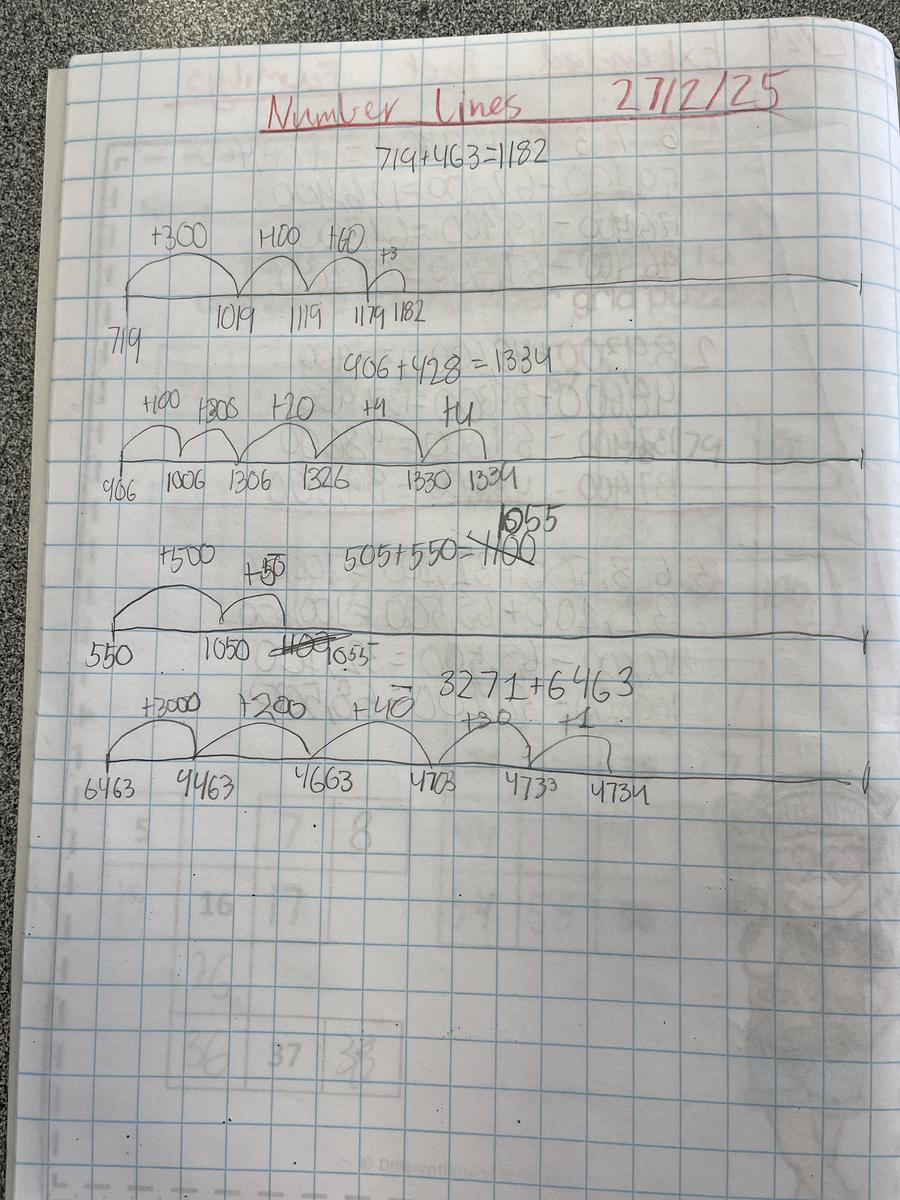 Number Lines 27/2/25
719+463=1182
+300 +100 +60 +3
719 1019 1119 1179 1182
906+428=1334
+100 +300 +20 +4 +4
906 1006 1306 1326 1330 1334
1055
505+550=1100
+500 +5
550 1050 1100 1055
3271+6463
+3000 +200 +40 +30 +1
6463 9463 4663 4703 4733 4734
5 7 8
16 17
26
36 37 38